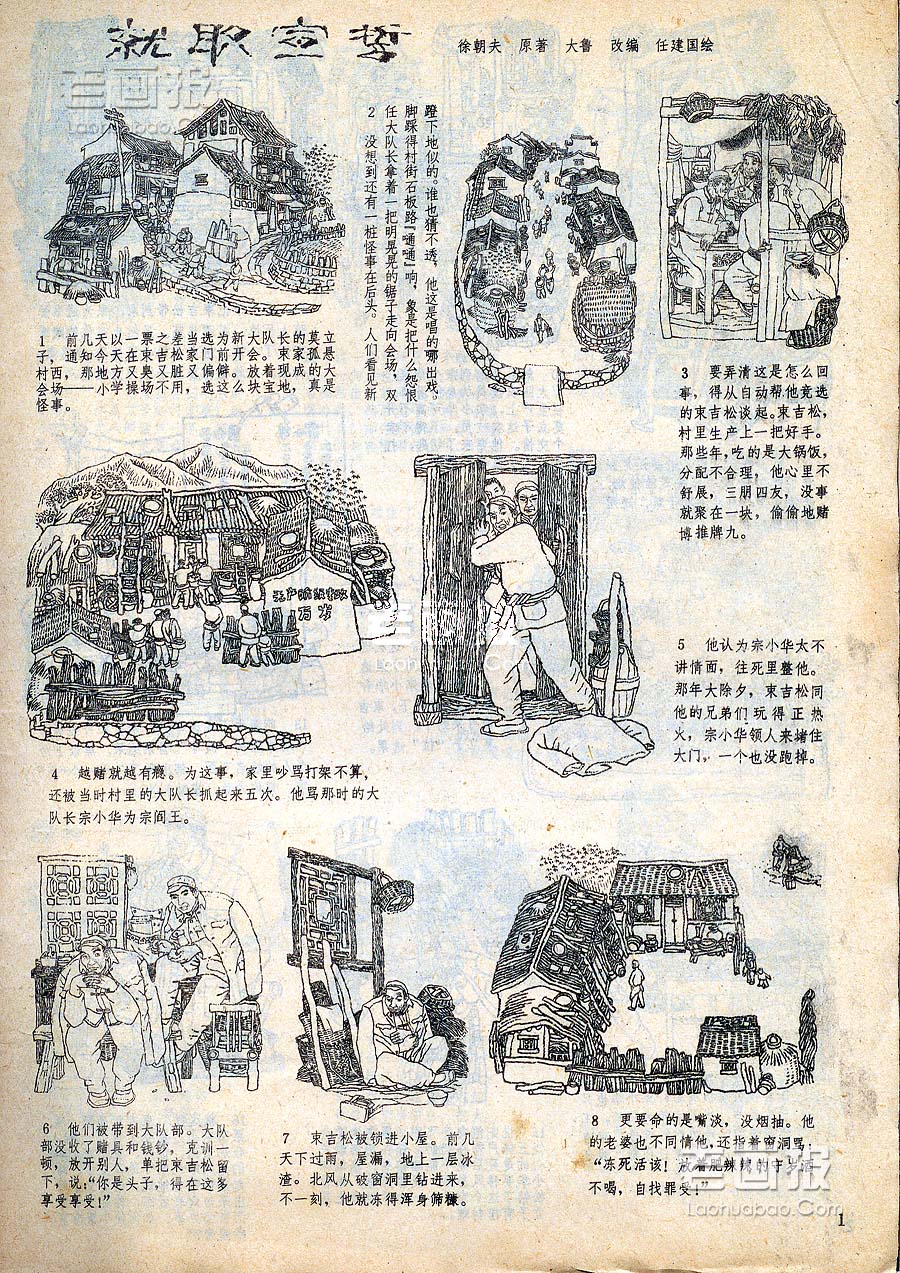 就职宣誓
徐朝夫 原著 大鲁 改编 任建国绘
老画报
Laohuabao.Com
1 前几天以一票之差当选为新大队长的莫立
子，通知今天在束吉松家门前开会。束家孤悬
村西，那地方又臭又脏又偏僻。放着现成的大
会场——小学操场不用，选这么块宝地，真是
怪事。
2 没想到还有一桩怪事在后头。人们看见新
任大队长拿着一把明晃晃的锯子走向会场，双
脚踩得村街石板路“嗵嗵”响，象是把什么怨恨
蹬下地似的。谁也猜不透，他这是唱的哪出戏。
3 要弄清这是怎么回
事，得从自动帮他竞选
的束吉松谈起。束吉松，
村里生产上一把好手。
那些年，吃的是大锅饭，
分配不合理，他心里不
舒展，三朋四友，没事
就聚在一块，偷偷地赌
博推牌九。
万岁
老画报
Laohuabao.Com
4 越赌就越有瘾。为这事，家里吵骂打架不算，
还被当时村里的大队长抓起来五次。他骂那时的大
队长宗小华为宗阎王。
5 他认为宗小华太不
讲情面，往死里整他。
那年大除夕，束吉松同
他的兄弟们玩得正热
火，宗小华领人来堵住
大门，一个也没跑掉。
6 他们被带到大队部。大队
部没收了赌具和钱钞，克训一
顿，放开别人，单把束吉松留
下，说：“你是头子，得在这多
享受享受！”
7 束吉松被锁进小屋。前几
天下过雨，屋漏，地上一层冰
渣。北风从破窗洞里钻进来，
不一刻，他就冻得浑身筛糠。
8 更要命的是嘴淡，没烟抽。他
的老婆也不同情他，还指着窗洞骂：
“冻死活该！放着肥辣辣的守岁酒
不喝，自找罪受！”
老画报
Laohuabao.Com
1